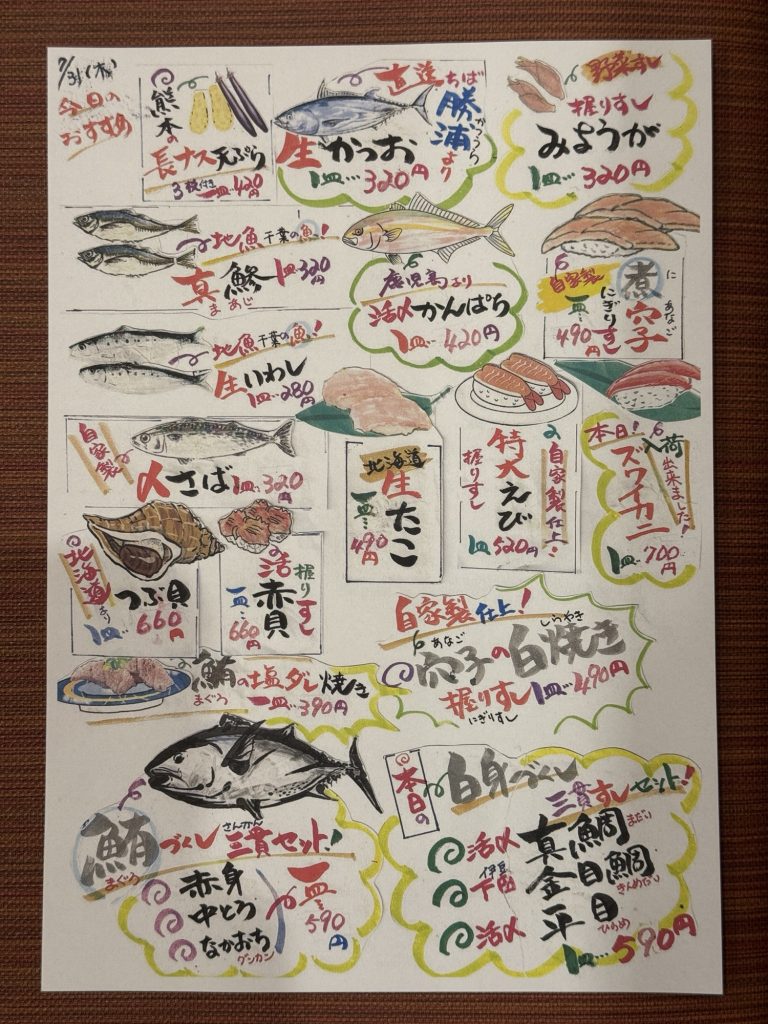 7/31(木)
今日の
おすすめ
熊本の
長ナス天ぷら
3枚付き 一皿…420円
直送ちば
勝浦より
かつうら
生かつお
1皿…320円
野菜すし
握りすし
みょうが
1皿…320円
地魚 千葉の魚!
真鯵 1皿320円
まあじ
鹿児島より
活〆かんぱち
1皿…420円
自家製
煮穴子
に あなご
にぎりすし
一皿…490円
地魚 千葉の魚!
生いわし
1皿…280円
自家製
〆さば 1皿…320円
北海道
生たこ
一皿…490円
自家製仕上!
特大えび
握りすし
1皿520円
本日!
入荷出来ました!
ズワイカニ
1皿…700円
北海道より
つぶ貝
1皿…660円
握りすし
活赤貝
一皿…660円
自家製仕上!
あなご しらやき
穴子の白焼き
握りすし 1皿…490円
にぎりすし
鮪の塩ダレ焼き
まぐろ 一皿…390円
鮪づくし 三貫セット!
まぐろ さんかん
赤身
中とろ
なかおち
グンカン
一皿…590円
本日の
白身づくし
三貫すしセット!
活〆 真鯛 まだい
伊豆下田 金目鯛 きんめだい
活〆 平目 ひらめ
1皿…590円